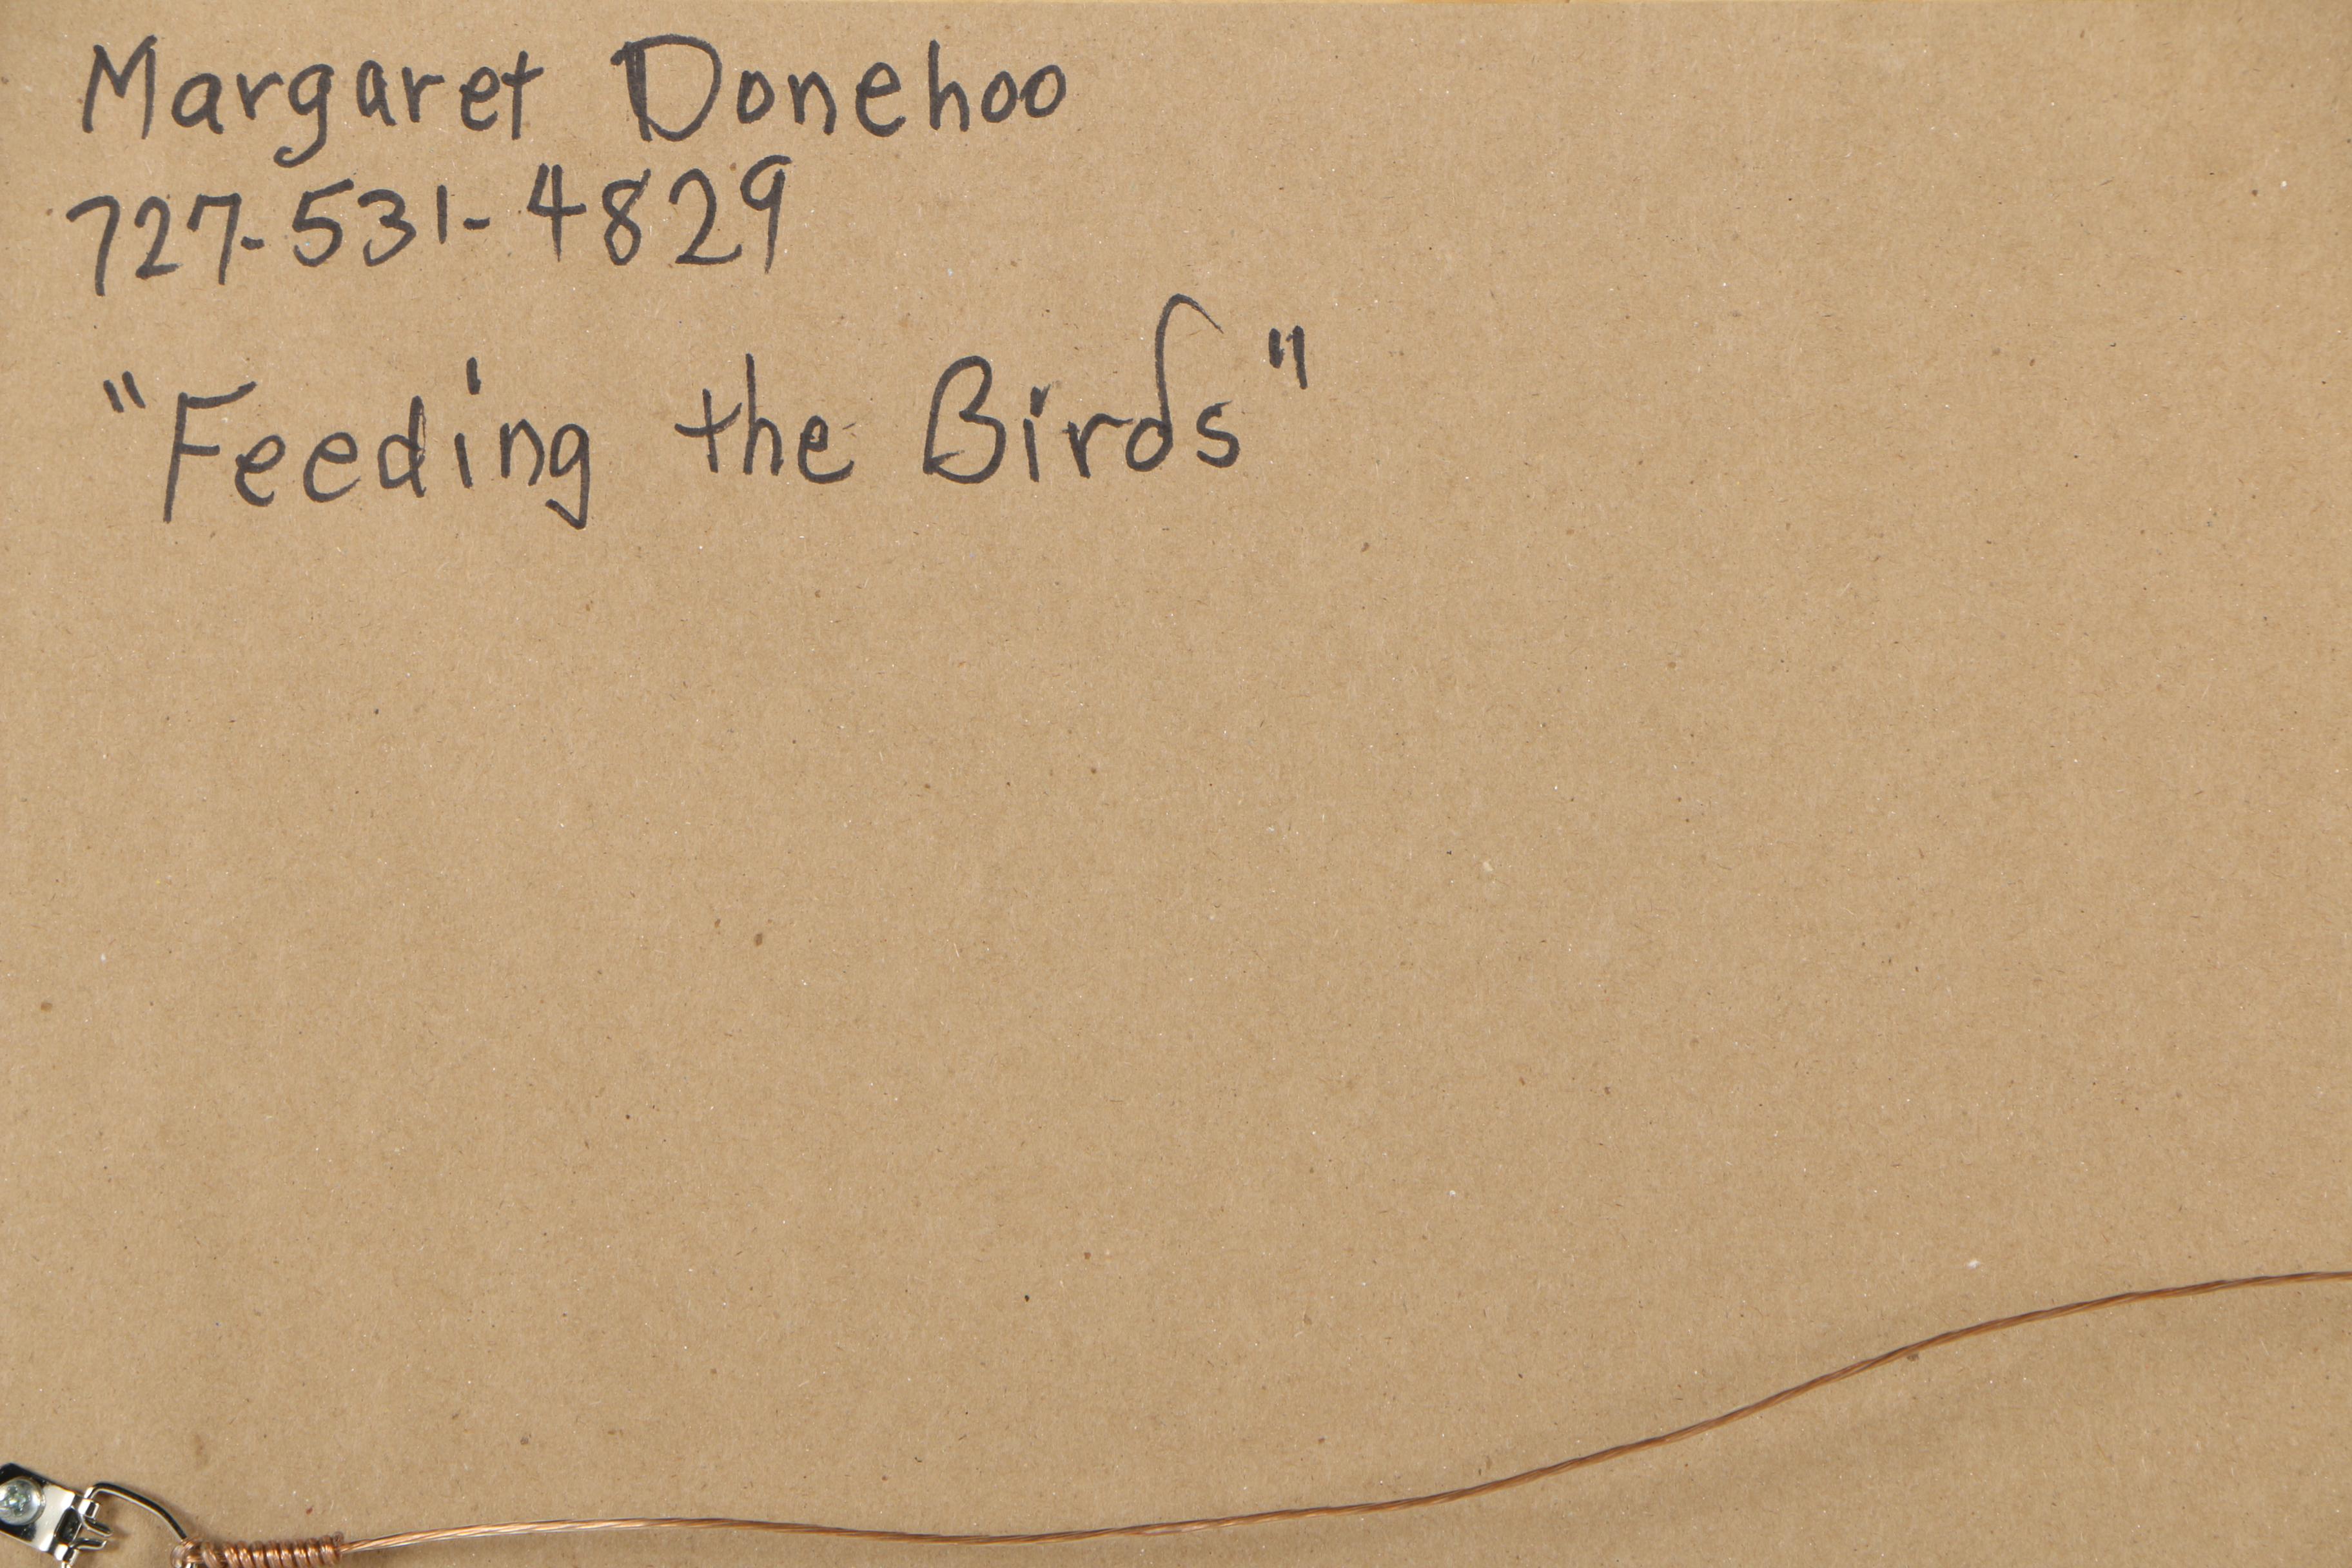 Margaret Donehoo
727-531-4829
"Feeding the Birds"